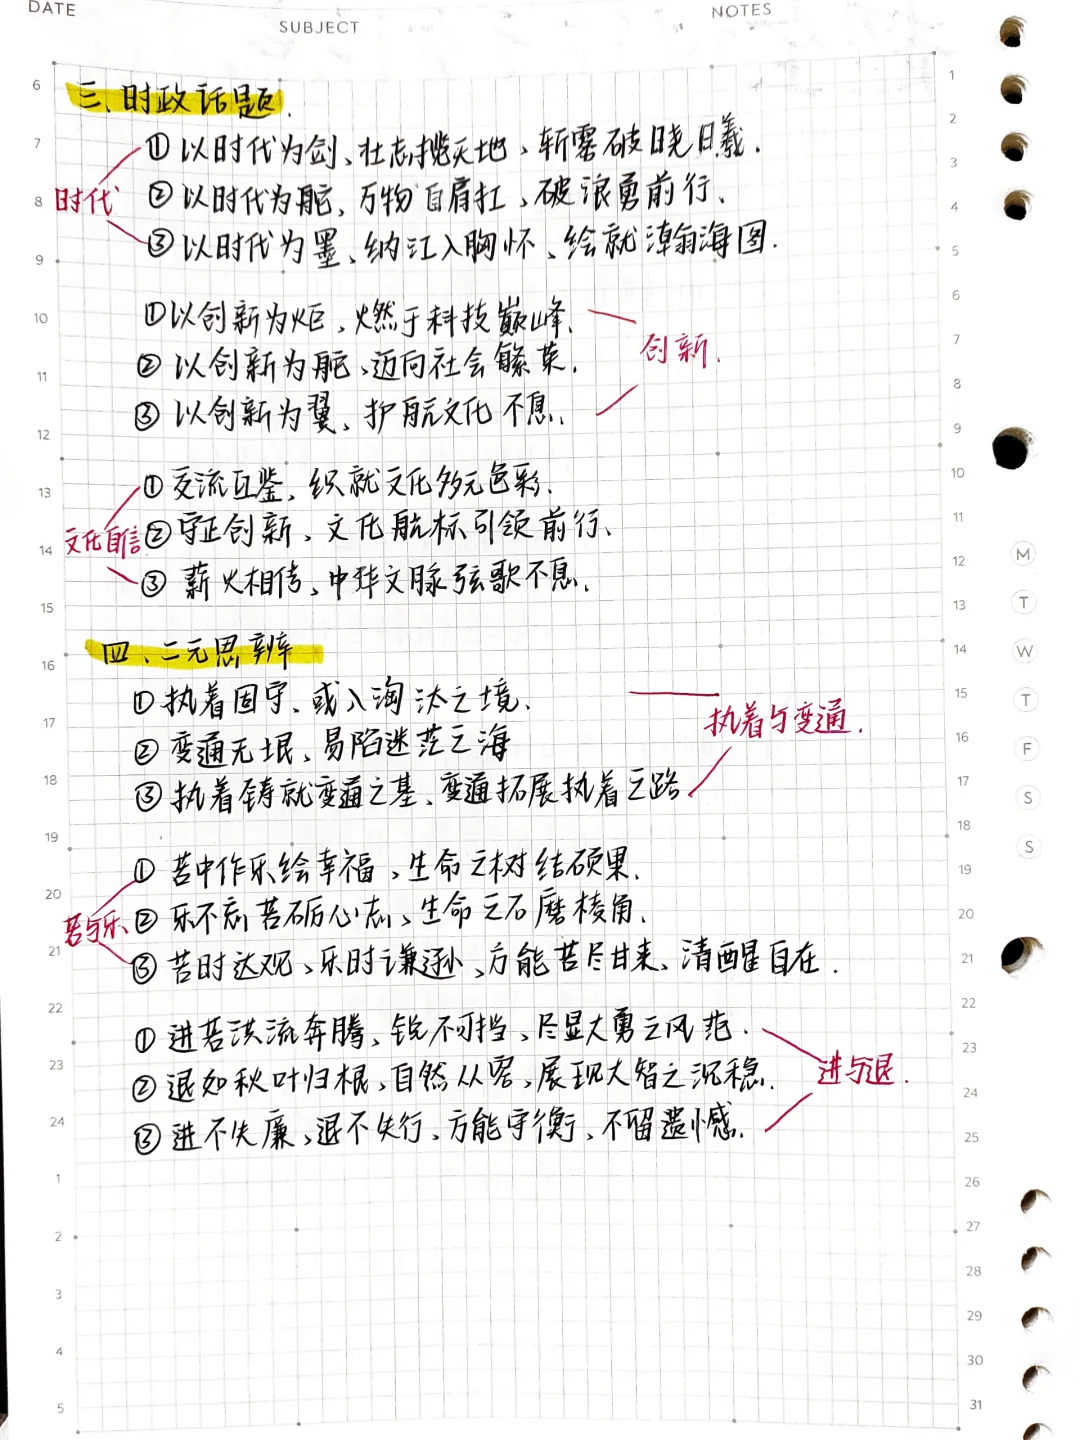 DATE
SUBJECT
NOTES
三、时政话题.
①以时代为剑、壮志揽天地、斩雾破晓日羲.
时代 ②以时代为舵、万物自肩扛、破浪勇前行、
③以时代为墨、纳江入胸怀、绘就瀚海图.
①以创新为炬、燃于科技巅峰.
创新.
②以创新为舵、迈向社会繁荣.
③以创新为翼、护航文化不息.
①交流互鉴、织就文化多元色彩.
文化自信 ②守正创新、文化航标引领前行、
③薪火相传、中华文脉弦歌不息.
四、二元思辨
①执着固守、或入淘汰之境.
执着与变通.
②变通无垠、易陷迷茫之海
③执着铸就变通之基、变通拓展执着之路
①苦中作乐绘幸福、生命之树结硕果.
苦与乐、②乐不忘苦砺心志、生命之石磨棱角.
③苦时达观、乐时谦逊、方能苦尽甘来、清醒自在.
①进若洪流奔腾、锐不可挡、尽显大勇之风范.
②退如秋叶归根、自然从容、展现大智之沉稳. 进与退.
③进不失廉、退不失行、方能守衡、不留遗憾.
6
7
8
9
10
11
12
13
14
15
16
17
18
19
20
21
22
23
24
1
2
3
4
5
1
2
3
4
5
6
7
8
9
10
11
12
13
14
15
16
17
18
19
20
21
22
23
24
25
26
27
28
29
30
31
M
T
W
T
F
S
S